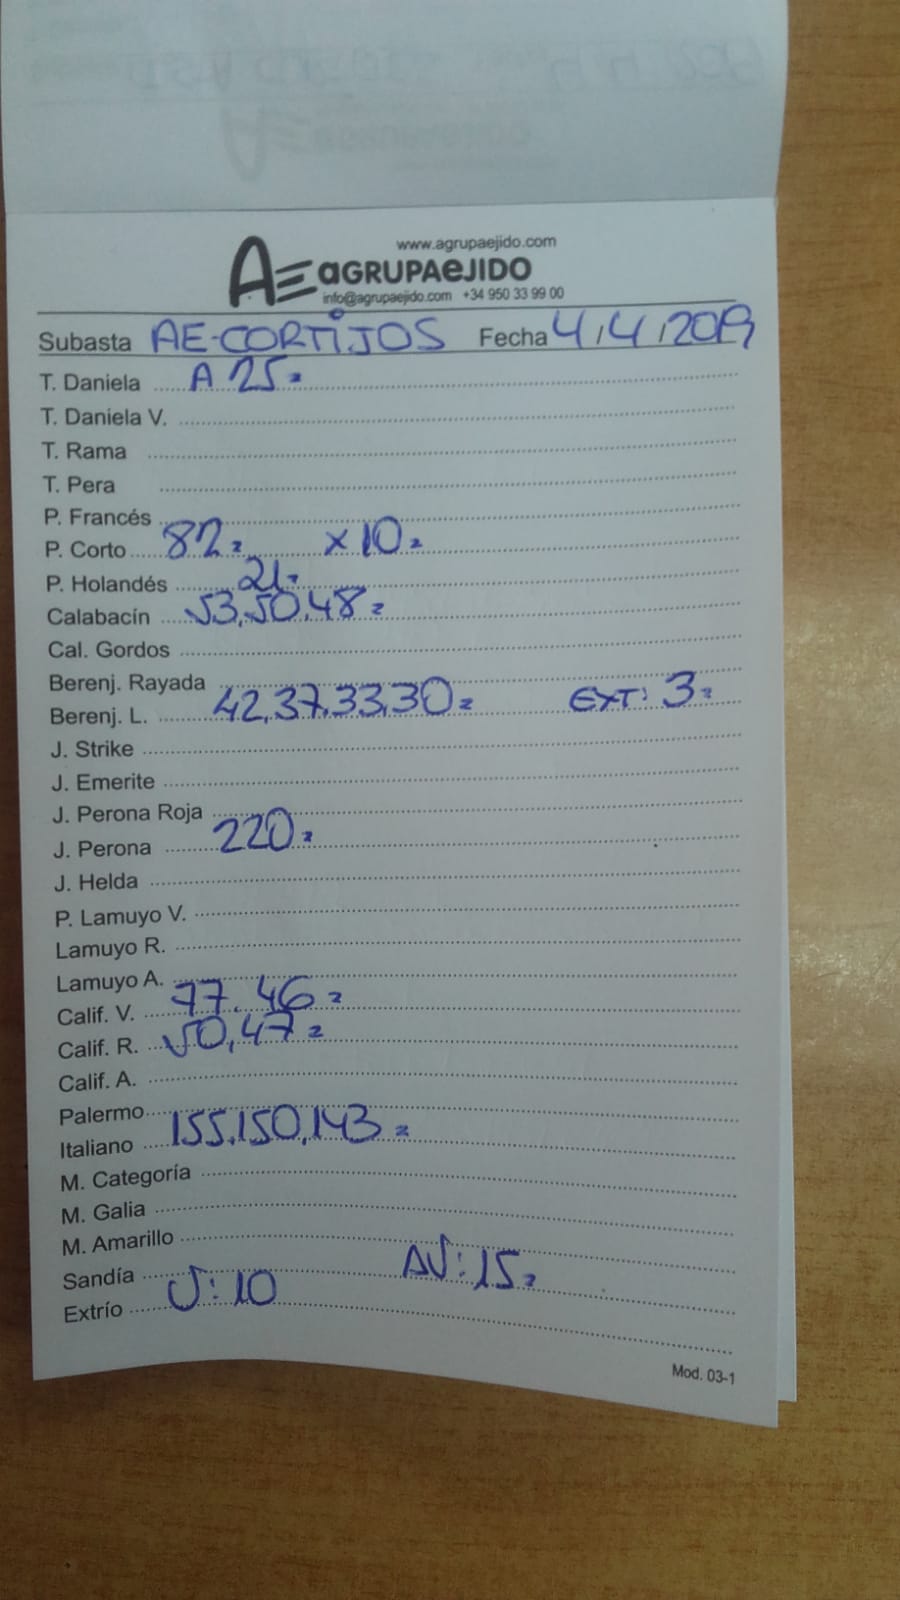 www.agrupaejido.com
AE aGRUPAeJIDO
info@agrupaejido.com +34 950 33 99 00
Subasta AE-CORTIJOS Fecha 4/4/2019
T. Daniela A 25
T. Daniela V.
T. Rama
T. Pera
P. Francés
P. Corto 82 x 10
P. Holandés 21
Calabacín 53,50,48
Cal. Gordos
Berenj. Rayada
Berenj. L. 42,37,33,30 EXT: 3
J. Strike
J. Emerite
J. Perona Roja
J. Perona 220
J. Helda
P. Lamuyo V.
Lamuyo R.
Lamuyo A.
Calif. V. 77,46
Calif. R. 50,47
Calif. A.
Palermo
Italiano 155,150,143
M. Categoría
M. Galia
M. Amarillo
Sandía
Extrío V:10 AV:15
Mod. 03-1